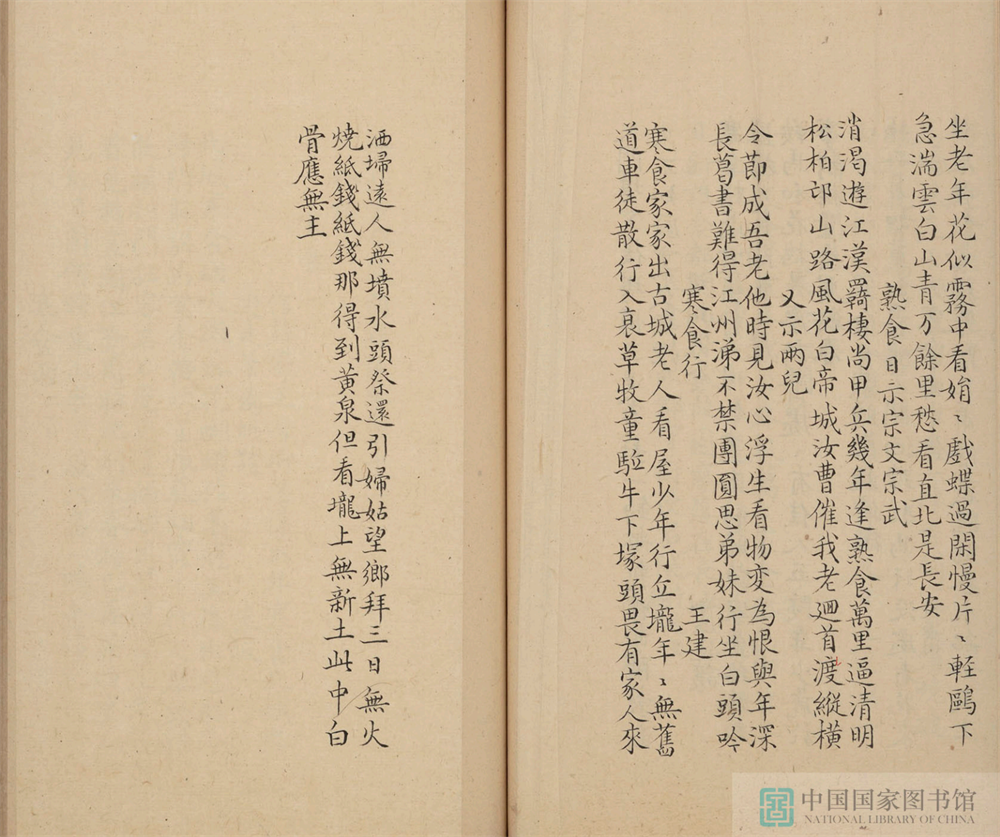 坐老年花似霧中看娟〻戲蝶過閑幔片〻輕鷗下
急湍雲白山青万餘里愁看直北是長安
熟食日示宗文宗武
消渴遊江漢羇棲尚甲兵幾年逢熟食萬里逼清明
松柏邙山路風花白帝城汝曹催我老廻首淚縱横
又示兩兒
令節成吾老他時見汝心浮生看物変為恨與年深
長葛書難得江州涕不禁團圓思弟妹行坐白頭吟
寒食行 王建
寒食家家出古城老人看屋少年行丘壠年〻無舊
道車徒散行入衰草牧童駈牛下塚頭畏有家人來
洒埽遠人無墳水頭祭還引婦姑望鄉拜三日無火
燒紙錢紙錢那得到黄泉但看壠上無新土此中白
骨應無主
中国国家图书馆
NATIONAL LIBRARY OF CHINA